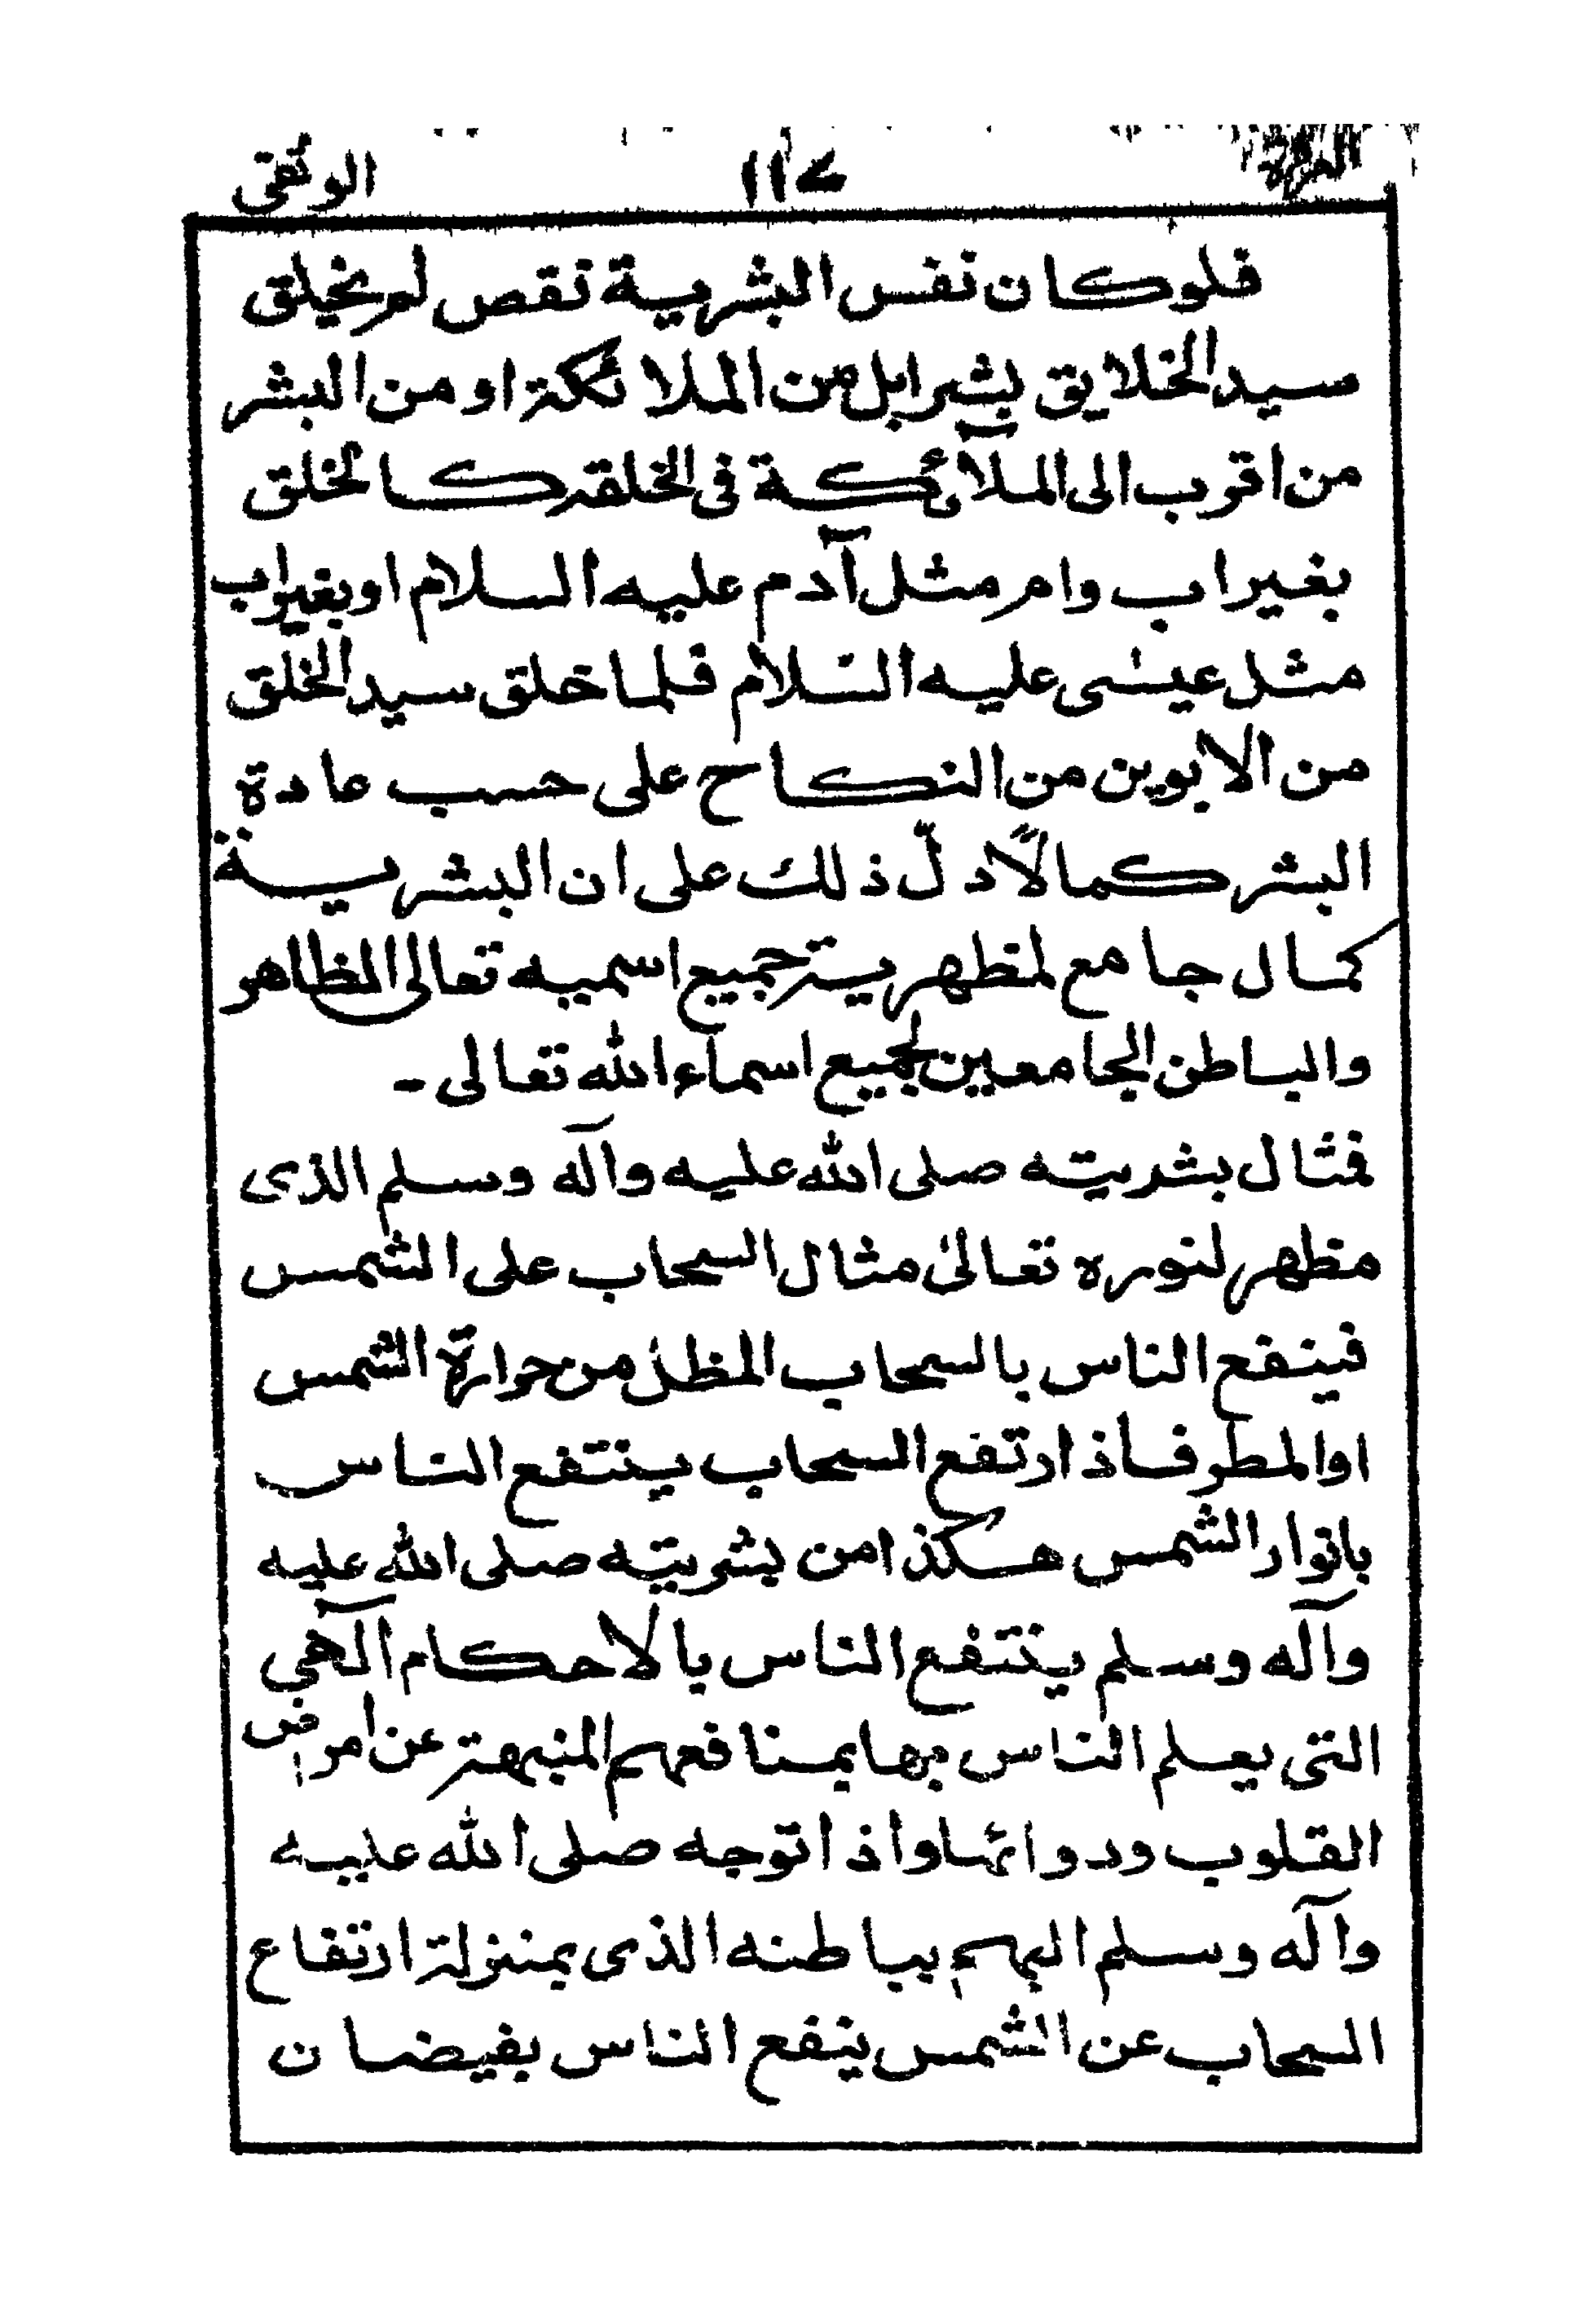 العروة ١١٧ الوثقى
فلوكان نفس البشرية نقص لم يخلق
سيد الخلايق بشرا بل من الملائكة او من البشر
من اقرب الى الملآئكة فى الخلقة كالخلق
بغير اب وام مثل آدم عليه السلام او بغير اب
مثل عيسٰى عليه السّلام فلما خلق سيد الخلق
من الابوين من النكاح على حسب عادة
البشر كمالًا دلّ ذلك على ان البشرية
كمال جامع لمظهرية جميع اسميه تعالى الظاهر
والباطن الجامعين لجميع اسماء الله تعالى ـ
فمثال بشريته صلى الله عليه وآله وسلم الذى
مظهر لنوره تعالىٰ مثال السحاب على الشمس
فينفع الناس بالسحاب المظل من حرارة الشمس
او المطر فاذ ارتفع السحاب ينتفع الناس
بانوار الشمس هكذا من بشريته صلى الله عليه
وآله وسلم ينتفع الناس بالاحكام آلهي
التى يعلم الناس بها بمنافعهم المنبهة عن امراض
القلوب ودوائها واذا توجه صلى الله عليه
وآله وسلم اليهم بباطنه الذى بمنزلة ارتفاع
السحاب عن الشمس ينفع الناس بفيضان